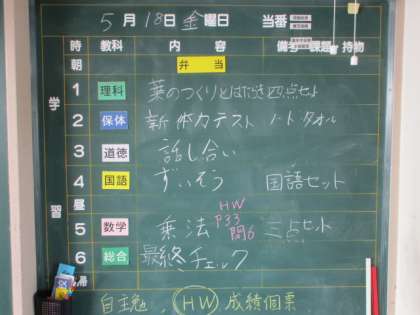 5月18日 金曜日 当番
時 教科 内容 備考・課題・持物
朝 弁当
学
1 理科 葉のつくりとはたらき 四点セット
2 保体 新体力テスト ノート タオル
3 道徳 話し合い
4 国語 ずいそう 国語セット
昼
習
HW
5 数学 乗法 P33 三点セット
問6
6 総合 最終チェック
帰
自主勉、HW、成績個票